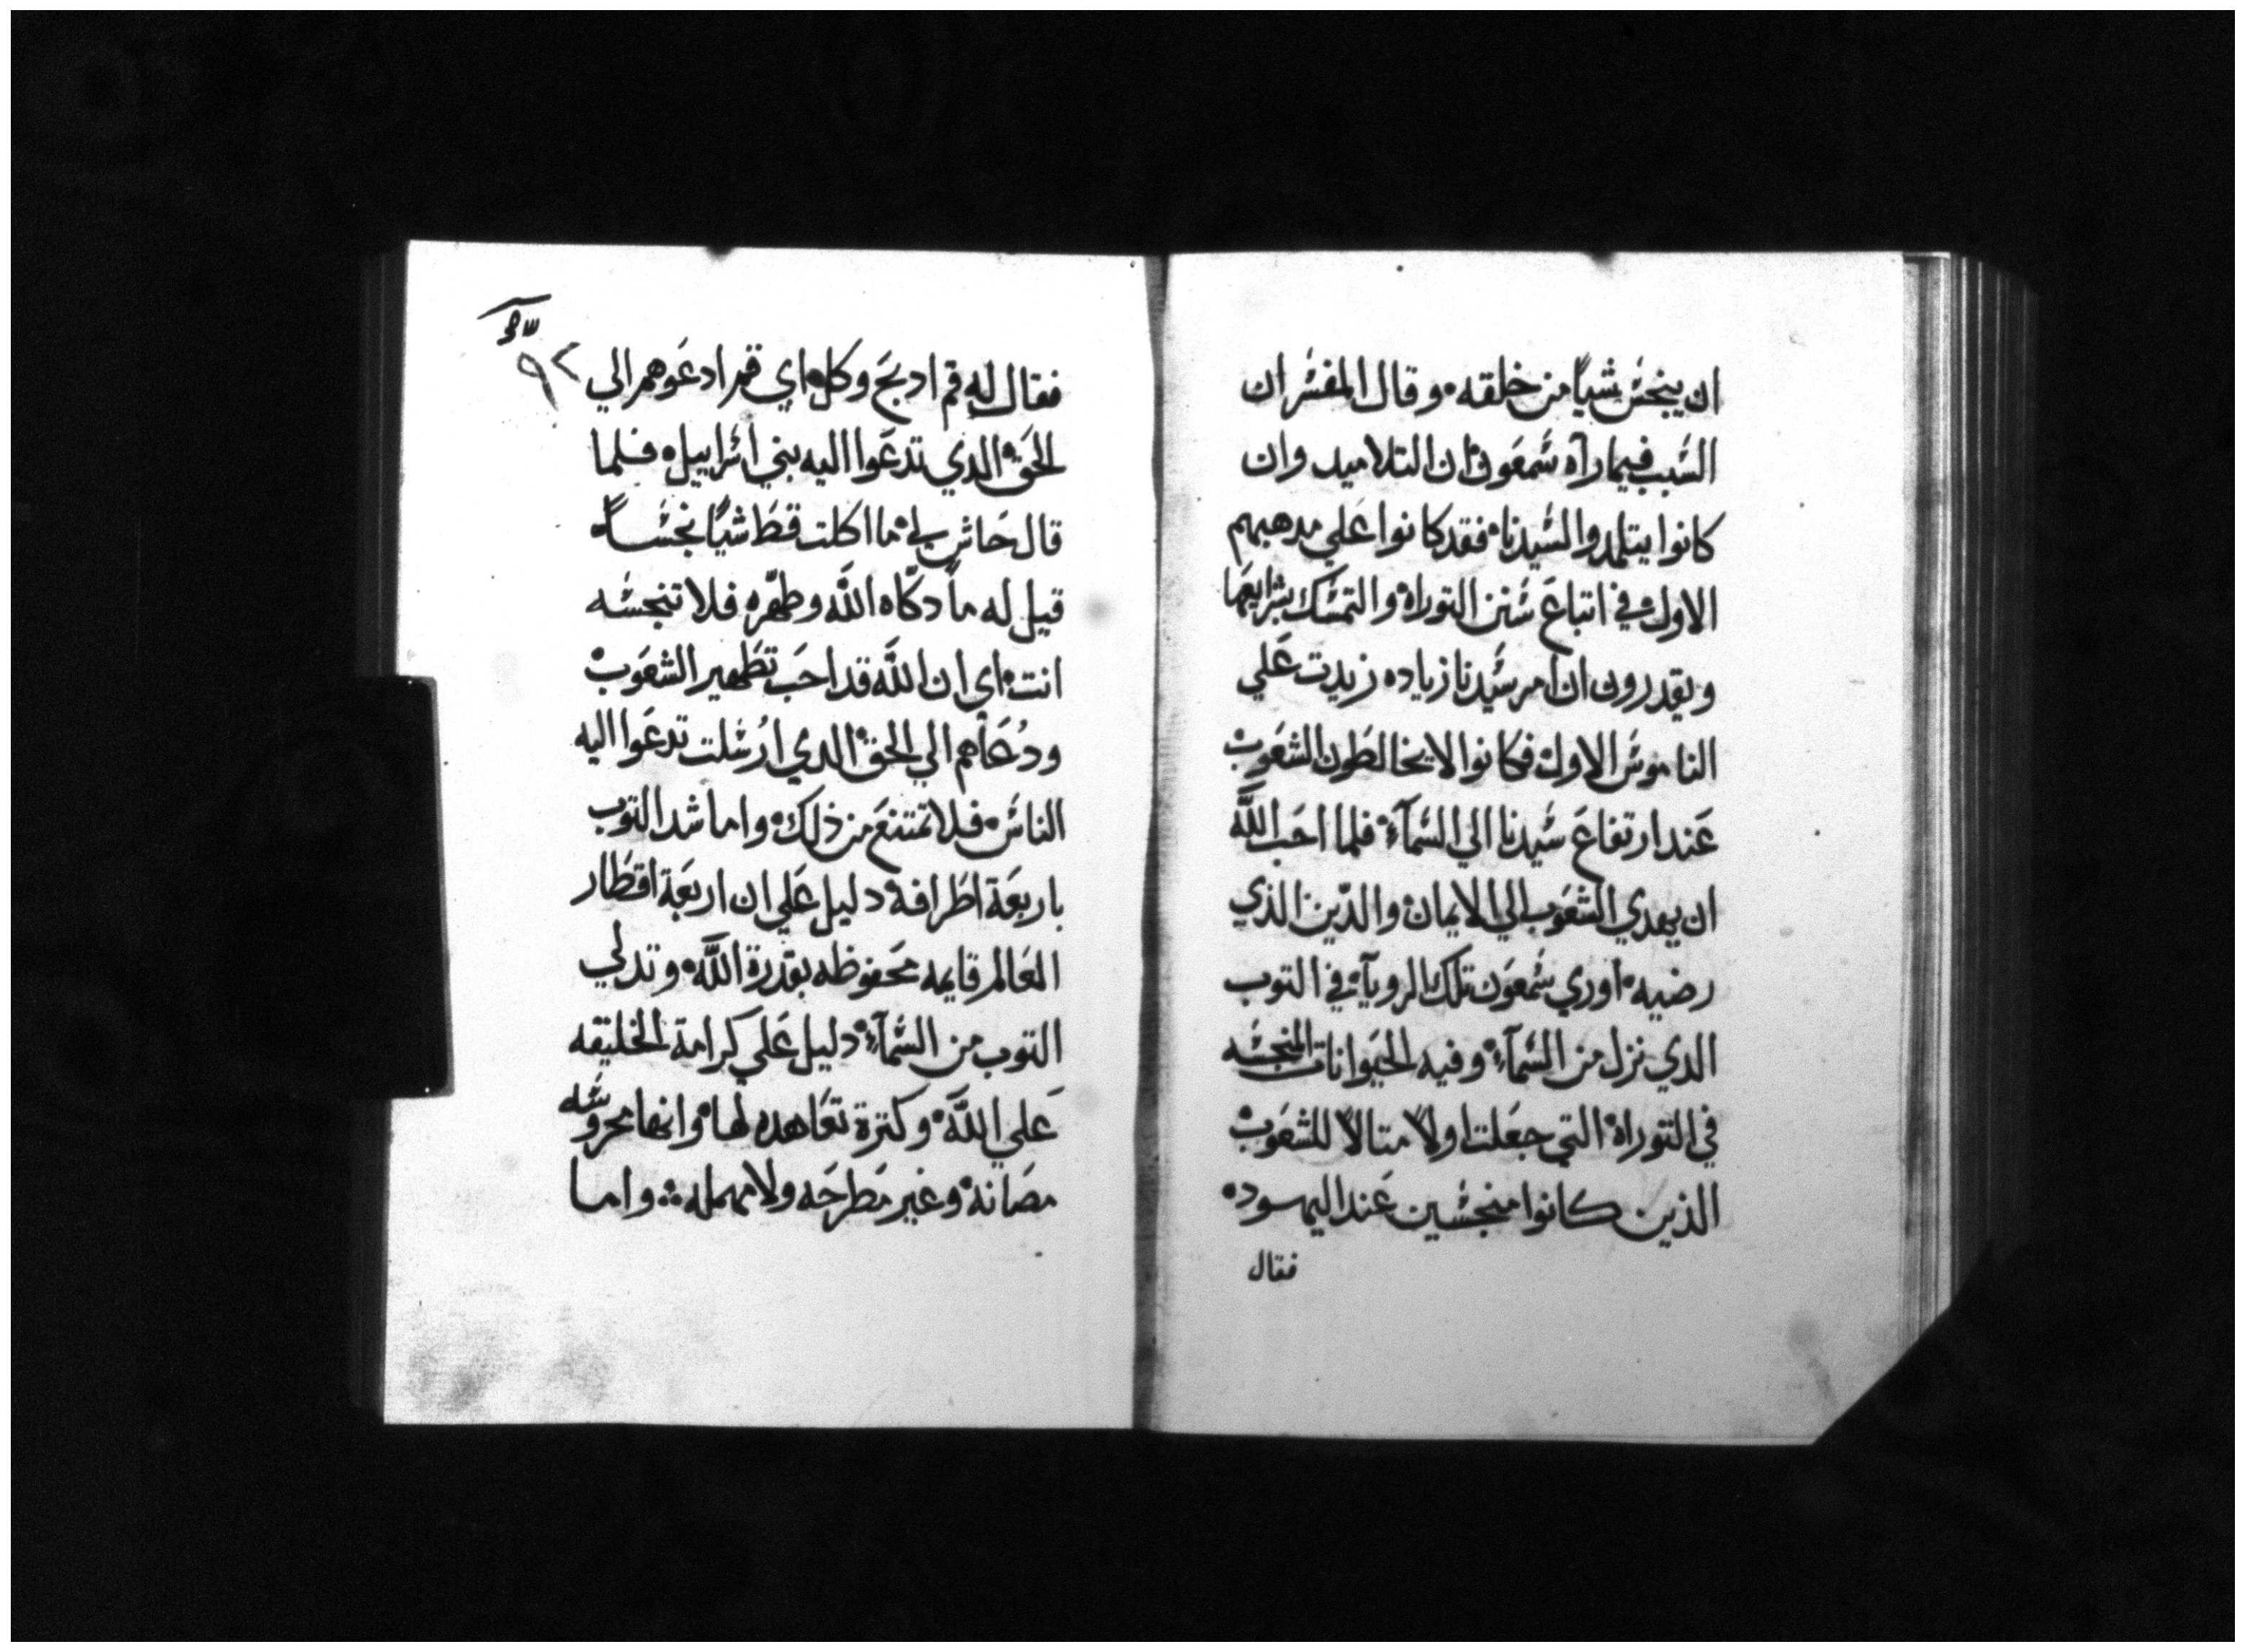 ان ينجس شيا من خلقه، وقال المفسر ان
السبب فيما رآه شمعون ان التلاميد وان
كانوا يتلمدوا لسيدنا، فقد كانوا علي مدهبهم
الاول، في اتباع سنن التوراة، والتمسك بشرايعها
ويقدرون ان امر سيدنا زياده زيدت علي
الناموس الاول، فكانوا لا يخالطون الشعوب،
عند ارتفاع سيدنا الي السمآء، فلما احب اللّه
ان يهدي الشعوب الي الايمان، والدين الذي
رضيه، اوري شمعون تلك الرويآ، في التوب
الدي نزل من السمآء، وفيه الحيوانات المنجسه
في التوراة، التي جعلت اولاً متالاً للشعوب،
الذين كانوا منجسين عند اليهود،
فقال
٩٢
فقال له قم ادبح وكل، اي قم ادعوهم الي
الحق، الدي تدعوا اليه بني اسراييل، فلما
قال حاش لي، ما اكلت قط شيًا نجسًا،
قيل له ما دكّاه اللّه وطهّره فلا تنجسه
انت، اي ان اللّه قد احب تطهير الشعوب،
ودُعَاهم الي الحق، الدي ارُسلت تدعوا اليه
الناس، فلا تمتنع من ذلك، واما شد التوب
باربعة اطرافه، دليل علي ان اربعة اقطار
العالم قايمه محفوظه بقدرة اللّه، وتدلي
التوب من السمآء، دليل علي كرامة الخليقه
علي اللّه، وكترة تعاهده لها، وانها محروسه
مصانه، وغير مطرحه ولا مهمله، واما